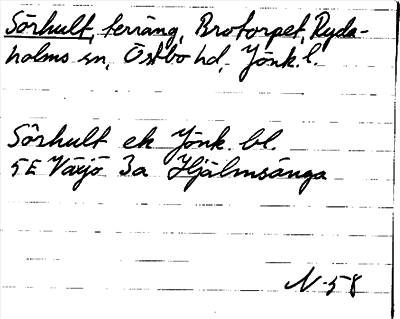 Sörhult, terräng, Brotorpet, Ryda-
holms sn, Östbo hd, Jönk. l.
Sörhult ek Jönk. bl.
5E Växjö 3a Hjälmsänga
N-58